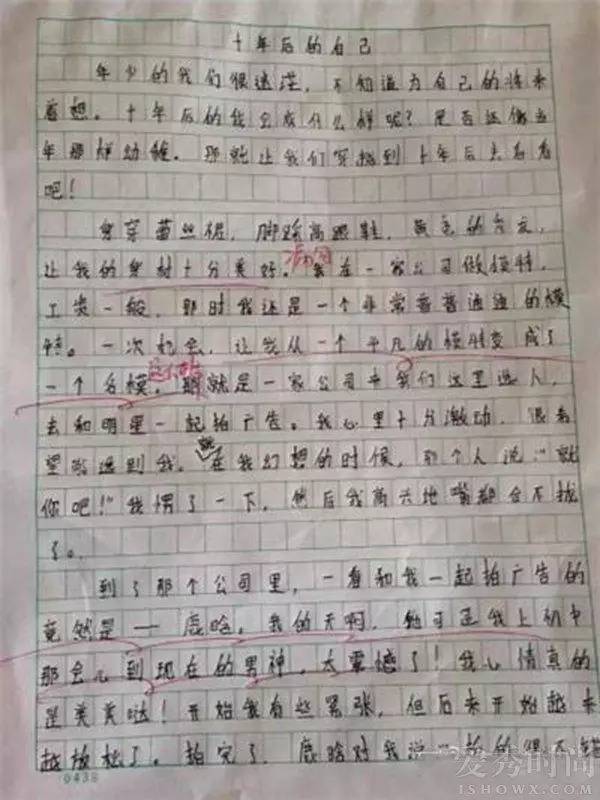 十年后的自己
年少的我们很迷茫，不知道为自己的将来
着想。十年后的我会成什么样呢？是否还像当
年那样幼稚。那就让我们穿越到十年后去看看
吧！
身穿蕾丝裙，脚踩高跟鞋，黄色的
让我的身材十分美好。我在一家公司做模特，
工资一般，那时我还是一个非常普普通通的模
特。一次机会，让我从一个平凡的模特变成了
一个名模。就是一家公司来我们这里选人，
去和明星一起拍广告。我心里十分激动，很希
望能选到我。就在我幻想的时候，那个人说："就
你吧！"我愣了一下，然后我高兴地嘴都合不拢
了。
到了那个公司里，一看和我一起拍广告的
竟然是——鹿晗。我的天啊，他可是我上初中
那会儿到现在的男神，太震憾了！我心情真的
是美美哒！开始我有些紧张，但后来开始越来
越放松了。拍完了，鹿晗对我说"拍的很不错
0438
爱秀时间
ISHOWX.COM